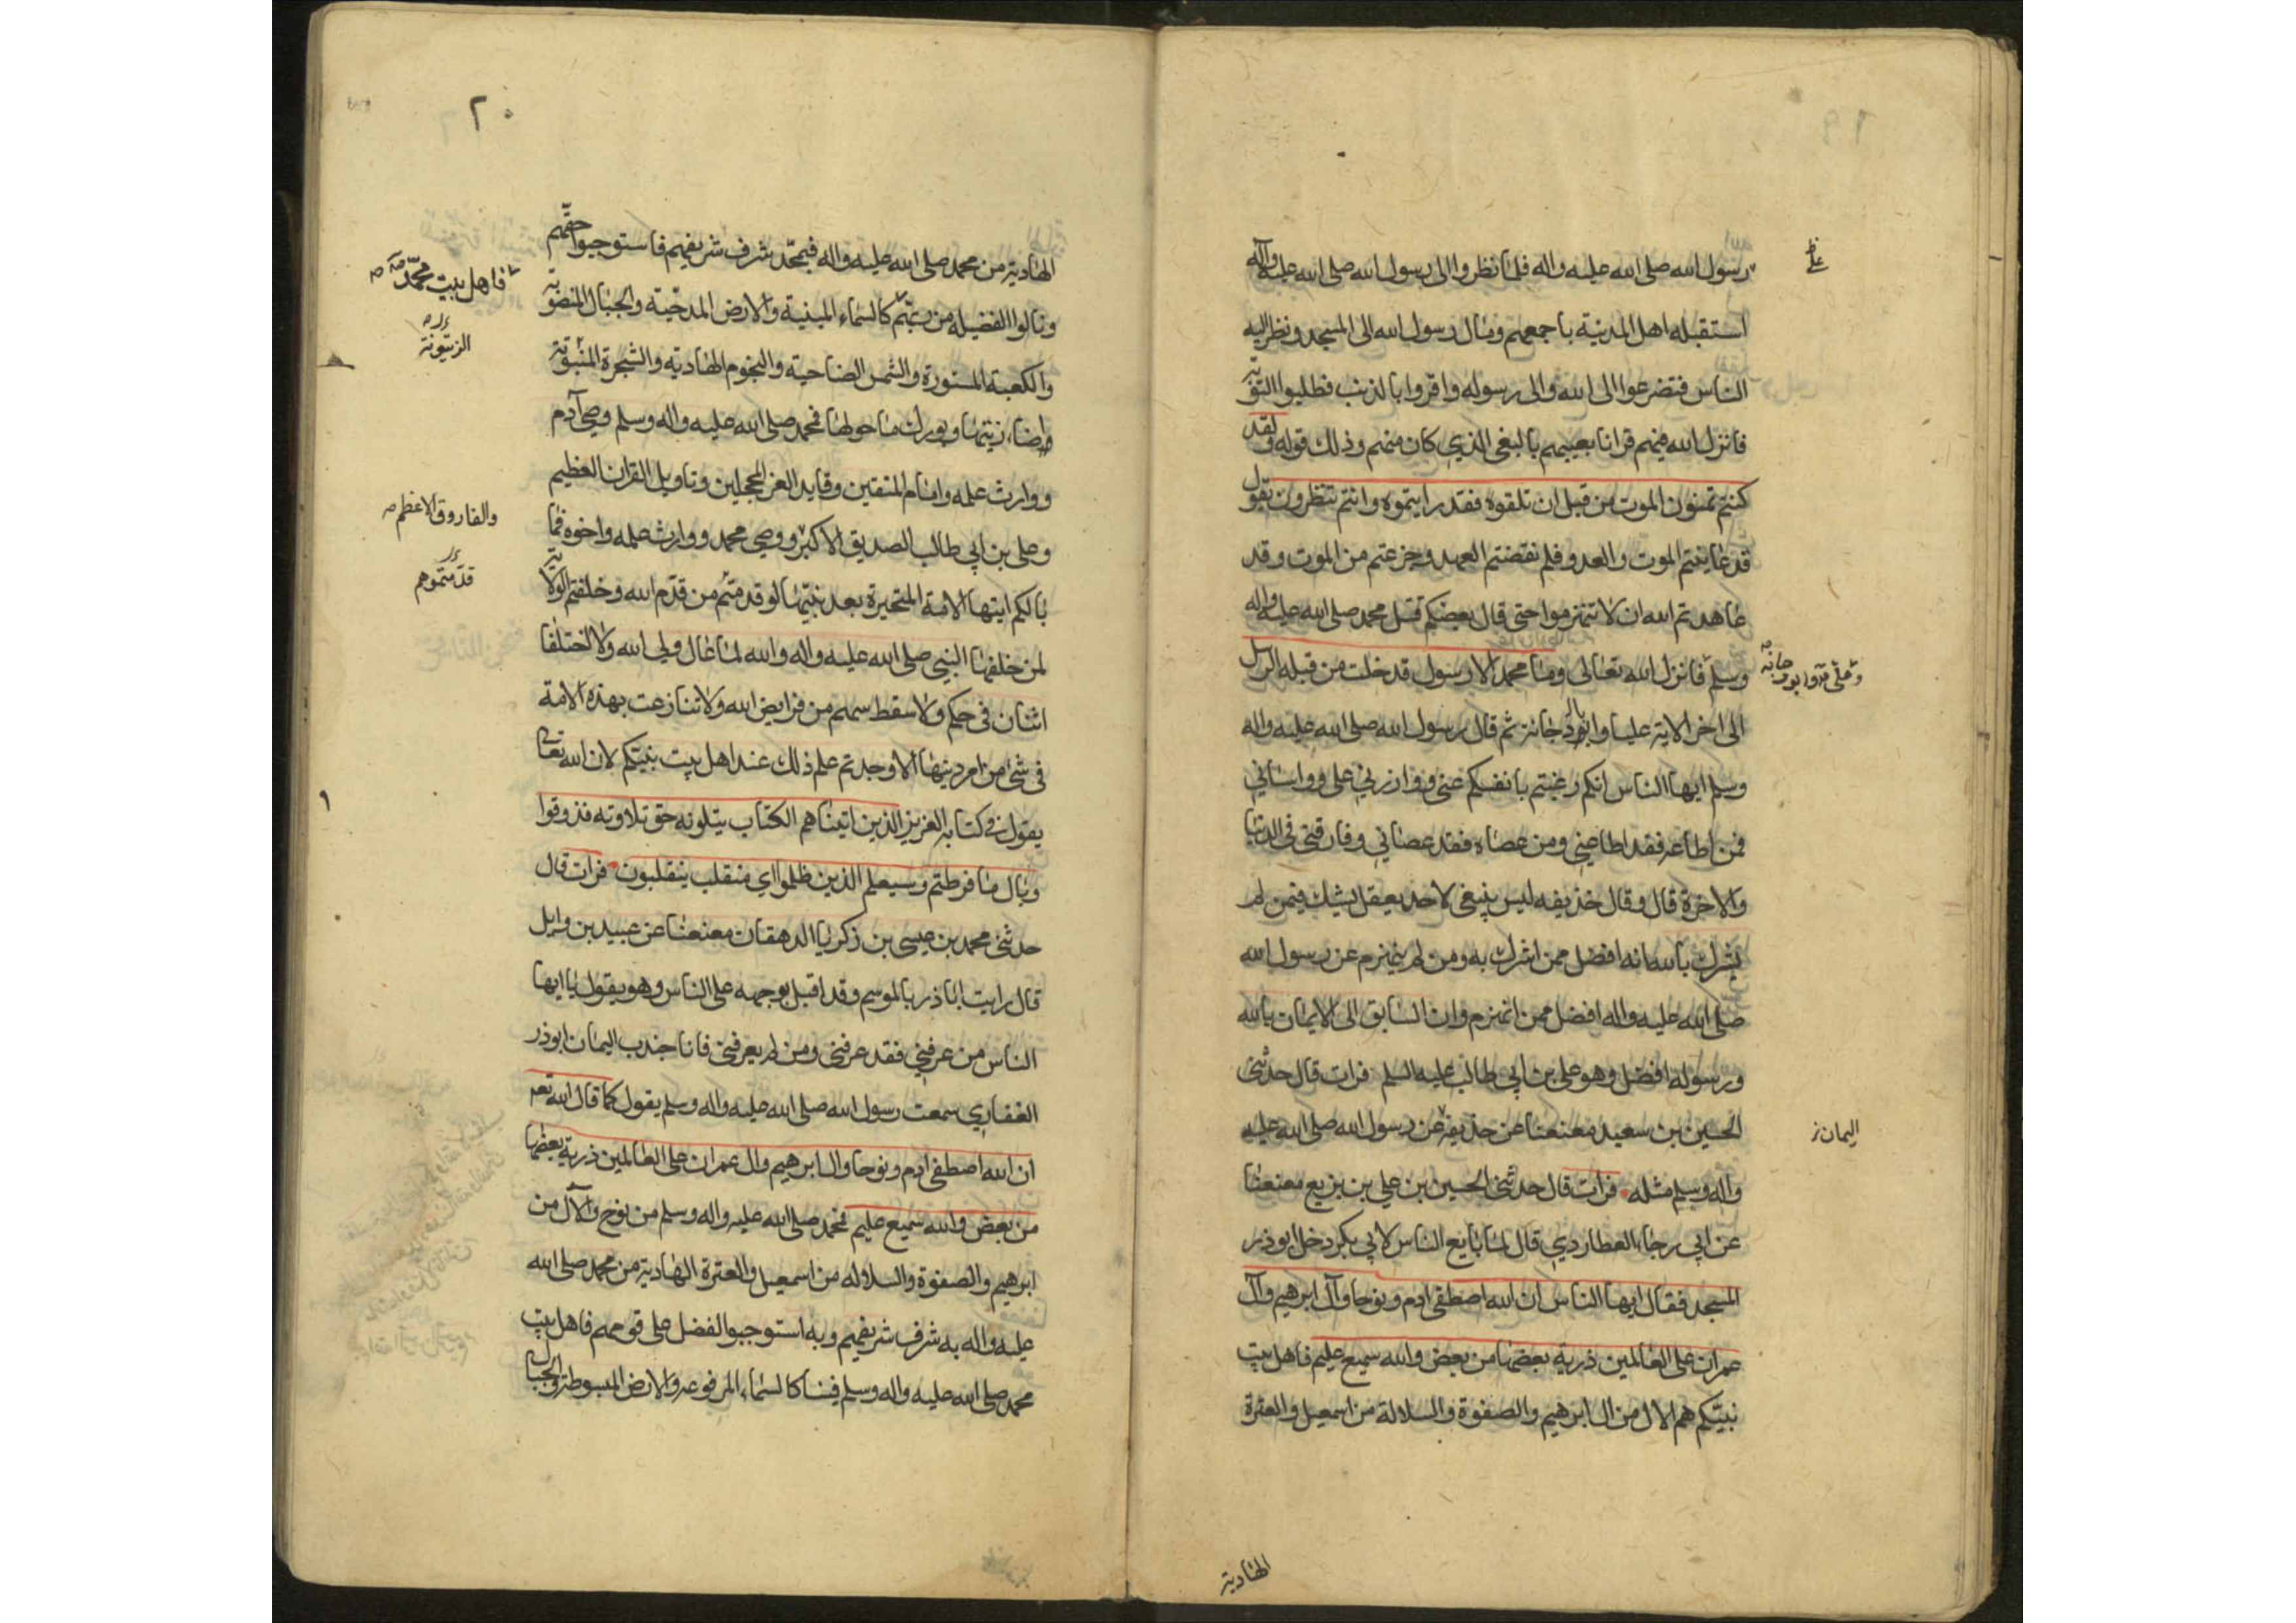 رسول الله صلى الله عليه واله فلما نظروا الى رسول الله صلى الله عليه واله
استقبله اهل المدينة باجمعهم ومال رسول الله الى المسجد ونظر اليه
الناس فتضرعوا الى الله والى رسوله واقروا بالذنب فطلبوا التوبة
فانزل الله فيهم قرانا بعيبهم بالبغى الذي كان منهم وذلك قوله ولقد
كنتم تمنون الموت من قبل ان تلقوه فقد رايتموه وانتم تنظرون يقول
قد عاينتم الموت والعدو فلم نقضتم العهد وجزعتم من الموت وقد
عاهدتم الله ان لا تنهزموا حتى قال بعضكم قتل محمد صلى الله عليه واله
وسلم فانزل الله تعالى وما محمد الا رسول قد خلت من قبله الرسل
الى اخر الاية عليا وابو دجانة ثم قال رسول الله صلى الله عليه واله
وسلم ايها الناس انكم رغبتم بانفسكم عنى ووازرني على وواساني
فمن اطاعه فقد اطاعني ومن عصاه فقد عصاني وفارقني في الدنيا
والاخرة قال وقال حذيفه ليس ينبغى لاحد يعقل يشك فيمن لم
يشرك بالله انه افضل ممن اشرك به ومن لم ينهزم عن رسول الله
صلى الله عليه واله افضل ممن انهزم وان السابق الى الايمان بالله
ورسوله افضل وهو على بن ابي طالب عليه السلم فرات قال حدثني
الحسين بن سعيد معنعنا عن حذيفة عن رسول الله صلى الله عليه
واله وسلم مثله فرات قال حدثني الحسين بن علي بن بزيع معنعنا
عن ابي رجاء العطاردي قال لما بايع الناس لابي بكر دخل ابو ذر
المسجد فقال ايها الناس ان الله اصطفى ادم ونوحا وآل ابرهيم وآل
عمران على العالمين ذرية بعضها من بعض والله سميع عليم فاهل بيت
نبيكم هم الال من ال ابرهيم والصفوة والسلالة من اسمعيل والعترة
اليمان
الهادية
٢٠
الهادية من محمد صلى الله عليه واله فبمحمد شرف شريفهم فاستوجبوا حقهم
ونالوا الفضيلة من ربهم كالسماء المبنية والارض المدحية والجبال المنصوبة
والكعبة المستورة والشمس الضاحية والنجوم الهادية والشجرة المنبوتة
واضاء زيتها وبورك ما حولها فمحمد صلى الله عليه واله وسلم وصي آدم
ووارث علمه وامام المتقين وقايد الغر المحجلين وتاويل القران العظيم
وعلى بن ابي طالب الصديق الاكبر ووصي محمد ووارث علمه واخوه فما
بالكم ايتها الامة المتحيرة بعد نبيها لو قدمتم من قدم الله وخلفتم الولاية
لمن خلفها النبي صلى الله عليه واله والله لما عال ولى الله ولا اختلفا
اثنان في حكم ولا سقط سهم من فرايض الله ولا تنازعت بهذه الامة
في شئ من امر دينها الا وجدتم علم ذلك عند اهل بيت نبيكم لان الله تعالى
يقول في كتابه العزيز الذين اتيناهم الكتاب يتلونه حق تلاوته فذوقوا
وبال ما فرطتم وسيعلم الذين ظلموا اي منقلب ينقلبون فرات قال
حدثني محمد بن عيسى بن زكريا الدهقان معنعنا عن عبيد بن وايل
قال رايت ابا ذر بالموسم وقد اقبل بوجهه على الناس وهو يقول يا ايها
الناس من عرفني فقد عرفني ومن لم يعرفني فانا جندب اليمان ابو ذر
الغفاري سمعت رسول الله صلى الله عليه واله وسلم يقول كما قال الله تعه
ان الله اصطفى ادم ونوحا وال ابرهيم وال عمران على العالمين ذرية بعضها
من بعض والله سميع عليم فمحمد صلى الله عليه واله وسلم من نوح والآل من
ابرهيم والصفوة والسلاله من اسمعيل والعترة الهادية من محمد صلى الله
عليه واله به شرف شريفهم وبه استوجبوا الفضل على قومهم فاهل بيت
محمد صلى الله عليه واله وسلم فينا كالسماء المرفوعه والارض المبسوطة والجبال
فاهل بيت محمد
الزيتونة
والفاروق الاعظم
قدمتموهم